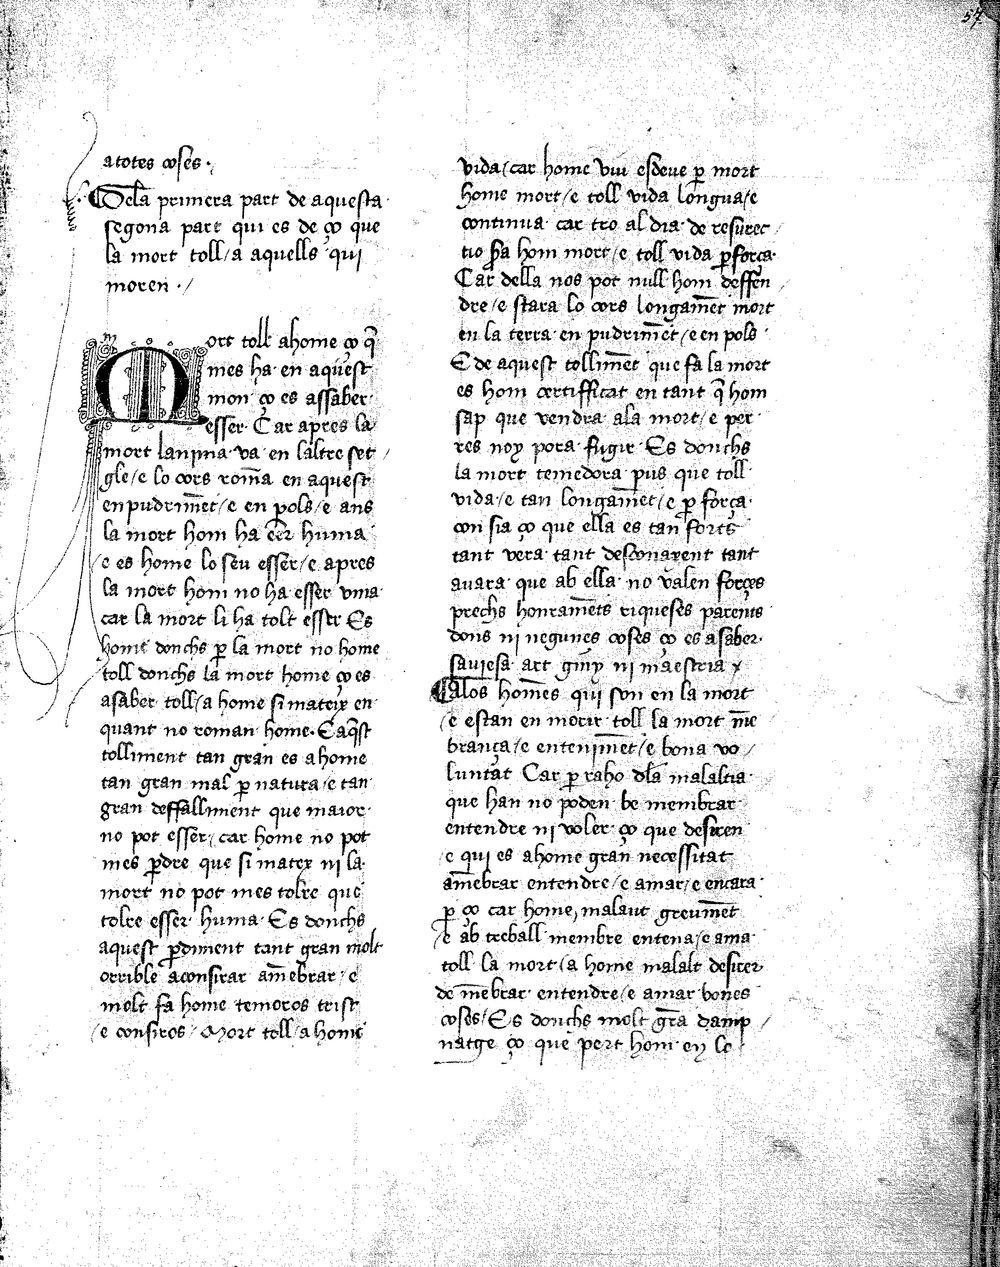 57
atotes coses ·
Dela primera part de aquesta
segona part qui es de ço que
la mort toll / a aquells qui
moren · /
Mort toll ahome ço q̄
mes ha en aquest
mon · ço es assaber ·
esser · Car apres la
mort lanima va en laltre set /
gle / e lo cors romā en aquest
enpudrimēt / e en pols / e ans
la mort hom ha esser huma
/ e es home lo seu esser / e apres
la mort hom no ha esser vma
car la mort li ha tolt esser Es
home donchs ꝑ la mort no home
toll donchs la mort home ço es
asaber toll / a home si mateix en
quant no roman home · E aq̄st
tolliment tan gran es ahome
tan gran mal ꝑ natura / e tan
gran deffalliment que maior ·
no pot esser / car home no pot
mes ꝑdre que si matex ni la
mort no pot mes tolre que
tolre esser huma · Es donchs
aquest ꝑdiment tant gran molt
orrible aconsirar amēbrar / e
molt fa home temoros trist
/ e consiros / Mort toll / a home
vida / car home viu esdeue ꝑ mort
home mort / e toll vida longua / e
continua · car tro al dia de resurec /
tio sta hom mort / e toll vida ꝑforça ·
Car della nos pot null hom deffen
dre / e stara lo cors longamēt mort
en la terra en pudrimēt / e en pols ·
E de aquest tollimēt que fa la mort
es hom certifficat en tant q̄ hom
sap que vendra ala mort / e per
res noy pora fugir · Es donchs
la mort temedora pus que toll
vida / e tan longamēt / e ꝑ força ·
con sia ço que ella es tan forts
tant vera tant desconaxent tant
auara · que ab ella no valen forçes
prechs honramēts riqueses parents
dons ni negunes coses ço es asaber ·
sauiesa art giny ni maestria
Calos homēs qui son en la mort
/ e estan en morir toll la mort mē
brança / e entenimēt / e bona vo /
luntat Car ꝑ raho dla malaltia
que han no poden be membrar
entendre ni voler · ço que desiren
/ e qui es ahome gran necessitat
amēbrar entendre / e amar / e encara ·
ꝑ ço car home, malaut greumēt
/ e ab treball membre entena / e ama
toll la mort / a home malalt desirer
de mēbrar entendre / e amar bones
coses / Es donchs molt grā damp /
natge ço que pert hom en lo